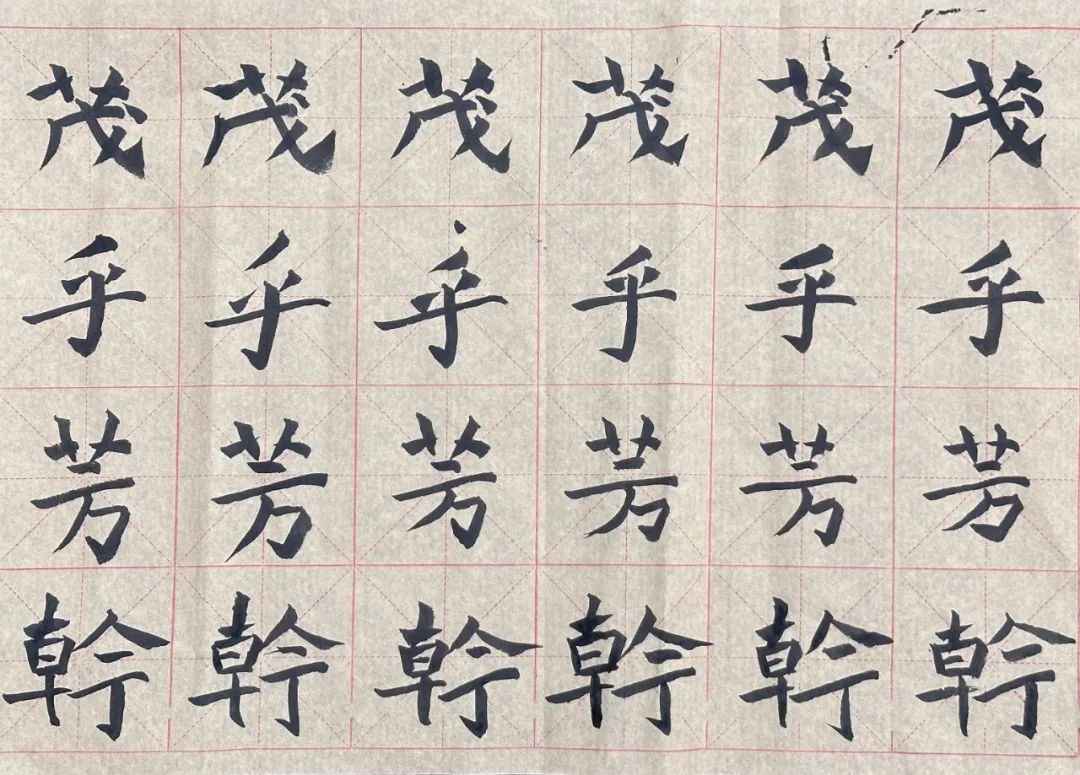 茂茂茂茂茂茂
乎乎乎乎乎乎
芳芳芳芳芳芳
幹幹幹幹幹幹